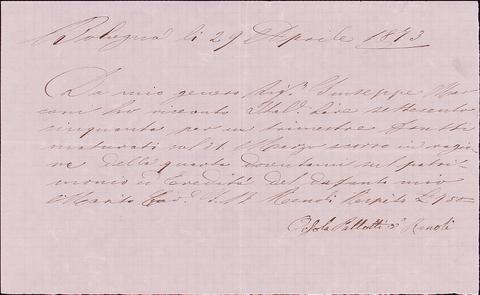 Bologna li 29 Aprile 1873
Da mio genero Sig.r Giuseppe Mar
coni ho ricevuto Ital.e Lire settecento
cinquanta per un trimestre frutti
maturati col 31 Marzo scorso in ragio
ne della quota dovutami sul patri
monio ed Eredità del defunto mio
Marito Cav.e Renoli Lire 750
Pallotti Renoli